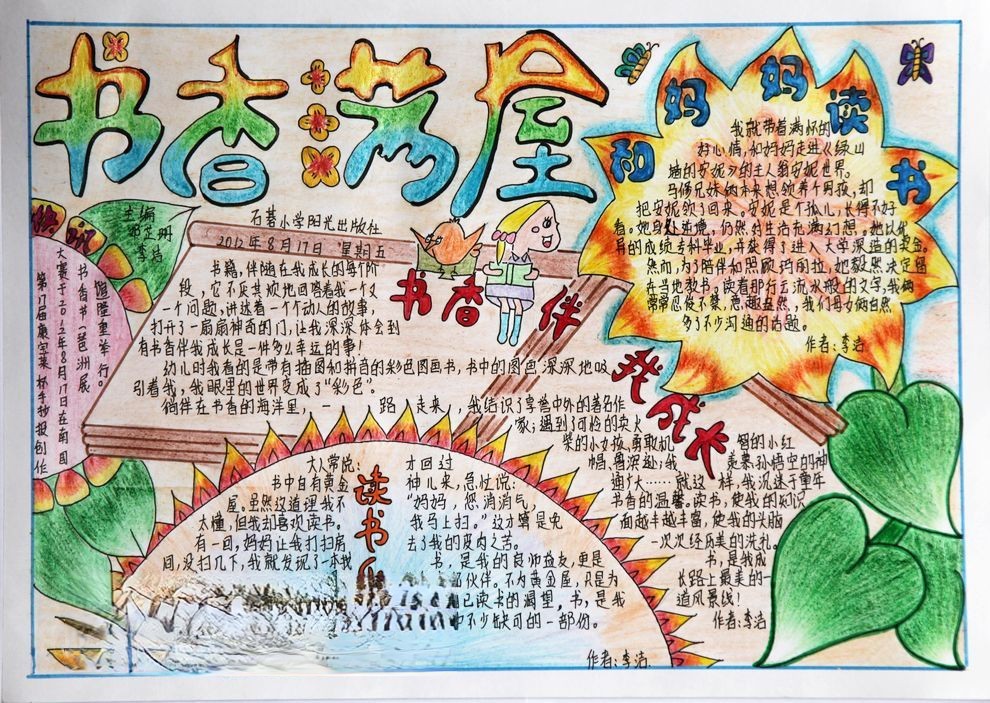 书香满屋
快讯
主编
李洁
石碁小学阳光出版社
2012年8月17日 星期五
书香节一琶洲展
隆重举行。
大赛于二0一二年8月17日在南国
第17届康宝莱杯手抄报创作
书香伴我成长
书籍,伴随在我成长的每个阶
段,它不厌其烦地回答着我一个又
一个问题,讲述着一个个动人的故事,
打开了一扇扇神奇的门,让我深深体会到
有书香伴我成长是一件多么幸运的事!
幼儿时我看的是带有插图和拼音的彩色图画书,书中的图色深深地吸
引着我,我眼里的世界变成了“彩色”。
徜徉在书香的海洋里,一路走来,我结识了享誉中外的著名作
家;遇到了可怜的卖火
柴的小女孩、勇敢机智的小红
帽、
羡慕孙悟空的神
通广大……就这样,我沉迷于童年
书香的温馨。读书,使我的知识
面越丰越丰富,使我的头脑
一次次经历美的洗礼。
书,是我成
长路上最美的一
道风景线!
作者:李洁
和妈妈读书
我就带着满怀的
好心情,和妈妈走进《绿山
墙的安妮》的主人翁安妮世界。
马修兄妹俩本来想领养个男孩,却
把安妮领了回来。安妮是个孤儿,长得不好
看。她身处逆境,仍然对生活充满幻想。她以优
异的成绩专科毕业,并获得了进入大学深造的奖金。
然而,为了陪伴和照顾玛丽拉,她毅然决定留
在当地教书。读着那行云流水般的文字,我俩
常常忍俊不禁,意趣盎然,我们母女俩自然
多了不少沟通的话题。
作者:李洁
读书
大人常说:
书中自有黄金
屋。虽然这道理我不
太懂,但我却喜欢读书。
有一回,妈妈让我打扫房
间,没扫几下,我就发现了一本我
才回过
神儿来,急忙说:
“妈妈,您消消气,
我马上扫。”这才算是免
去了我的皮肉之苦。
书,是我的良师益友,更是
伙伴。不为黄金屋,只是为
已读书的渴望,书,是我
中不少缺可的一部份。
作者:李洁